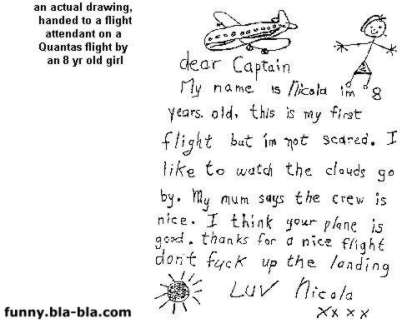 an actual drawing,
handed to a flight
attendant on a
Quantas flight by
an 8 yr old girl
dear Captain
My name is Nicola im 8
years old, this is my first
flight but im not scared. I
like to watch the clouds go
by. My mum says the crew is
nice. I think your plane is
good. thanks for a nice flight
don't fuck up the landing
Luv Nicola
xx x x
funny.bla-bla.com